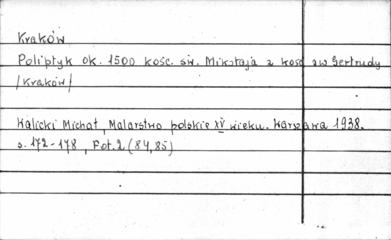 Kraków
Poliptyk ok. 1500 kośc. św. Mikołaja z kośc św Gertrudy
/Kraków/
Walicki Michał, Malarstwo polskie XV wieku. Warszawa 1938.
s. 172-178, Fot. 2 (84, 85)